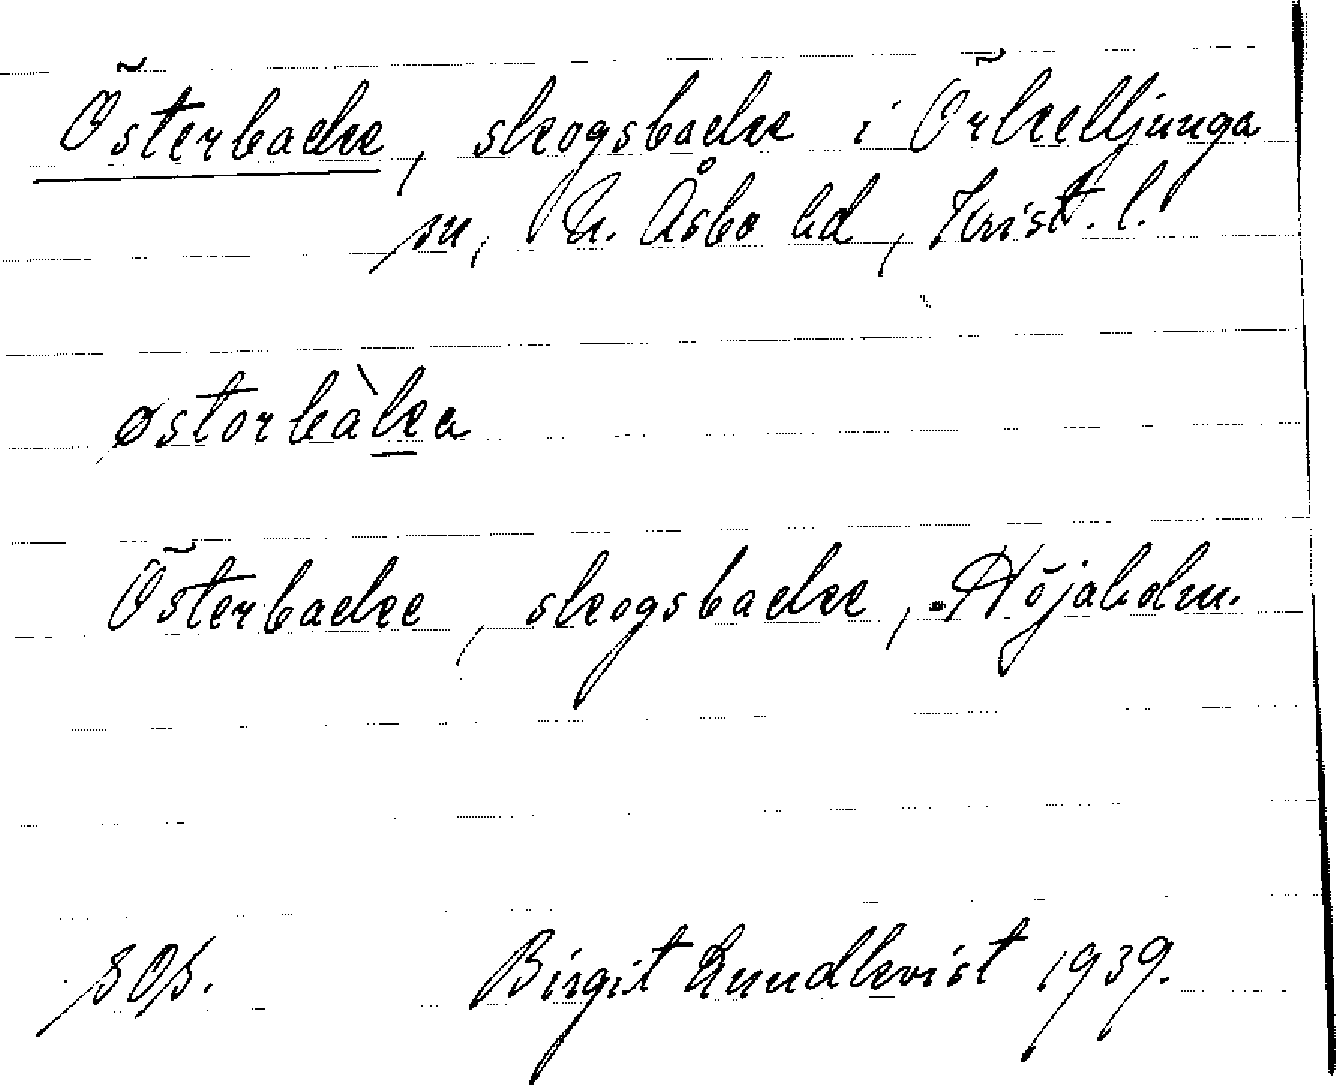 Österbacke, skogsbacke i Örkelljunga
sn, N. Åsbo hd, Krist. l.
østorbàka
Österbacke, skogsbacke, Höjaholm.
sOs. Birgit Lundkvist 1939.